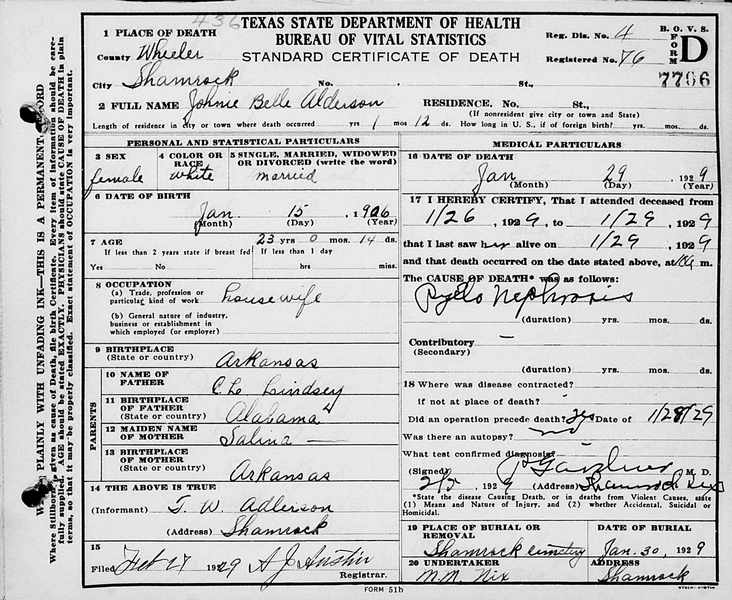 436
TEXAS STATE DEPARTMENT OF HEALTH
BUREAU OF VITAL STATISTICS
STANDARD CERTIFICATE OF DEATH
Reg. Dis. No. 4
Registered No. 76
B. O. V. S.
FORM D
7706
1 PLACE OF DEATH
County Wheeler
City Shamrock No. St.,
2 FULL NAME Johnie Belle Alderson RESIDENCE, No. St.,
(If nonresident give city or town and State)
Length of residence in city or town where death occurred yrs 1 mos 12 ds. How long in U. S., if of foreign birth? yrs. mos. ds.
PERSONAL AND STATISTICAL PARTICULARS
3 SEX
female
4 COLOR OR RACE
white
5 SINGLE, MARRIED, WIDOWED OR DIVORCED (write the word)
married
6 DATE OF BIRTH
Jan. 15, 1906
(Month) (Day) (Year)
7 AGE 23 yrs 0 mos. 14 ds.
If less than 2 years state if breast fed If less than 1 day
Yes No hrs mins.
8 OCCUPATION
(a) Trade, profession or particular kind of work housewife
(b) General nature of industry, business or establishment in which employed (or employer)
9 BIRTHPLACE
(State or country) Arkansas
PARENTS
10 NAME OF FATHER Lindsey
11 BIRTHPLACE OF FATHER
(State or country) Alabama
12 MAIDEN NAME OF MOTHER Salina —
13 BIRTHPLACE OF MOTHER
(State or country) Arkansas
14 THE ABOVE IS TRUE
(Informant) T. W. Adlerson
(Address) Shamrock
15
Filed Feb 17 1929 A J Austin
Registrar.
MEDICAL PARTICULARS
16 DATE OF DEATH
Jan 29 1929
(Month) (Day) (Year)
17 I HEREBY CERTIFY, That I attended deceased from
1/26, 1929, to 1/29, 1929
that I last saw her alive on 1/29, 1929
and that death occurred on the date stated above, at m.
The CAUSE OF DEATH* was as follows:
Pyelo Nephrosis
(duration) yrs. mos. ds.
Contributory —
(Secondary)
(duration) yrs. mos. ds.
18 Where was disease contracted?
if not at place of death?
Did an operation precede death? yes Date of 1/28/29
Was there an autopsy? no
What test confirmed diagnosis?
(Signed) M. D.
2/5, 1929 (Address) Shamrock Tex
*State the disease Causing Death, or in deaths from Violent Causes, state (1) Means and Nature of Injury, and (2) whether Accidental, Suicidal or Homicidal.
19 PLACE OF BURIAL OR REMOVAL
Shamrock cemetery
DATE OF BURIAL
Jan. 30, 1929
20 UNDERTAKER
N. M. Nix
ADDRESS
Shamrock
FORM 51b
PLAINLY WITH UNFADING INK—THIS IS A PERMANENT RECORD
Where Stillborn is given as cause of Death, file birth Certificate. Every item of information should be carefully supplied. AGE should be stated EXACTLY. PHYSICIANS should state CAUSE OF DEATH in plain terms, so that it may be properly classified. Exact statement of OCCUPATION is very important.